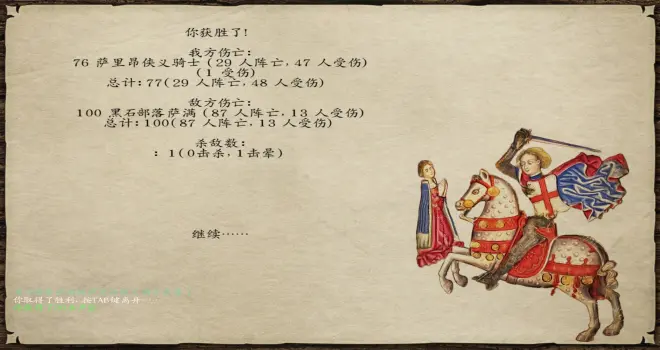 你获胜了!
我方伤亡:
76 萨里昂侠义骑士 (29 人阵亡, 47 人受伤)
(1 受伤)
总计: 77(29 人阵亡, 48 人受伤)
敌方伤亡:
100 黑石部落萨满 (87 人阵亡, 13 人受伤)
总计: 100(87 人阵亡, 13 人受伤)
杀敌数:
: 1(0击杀, 1击晕)
继续……
你取得了胜利, 按TAB键离开……